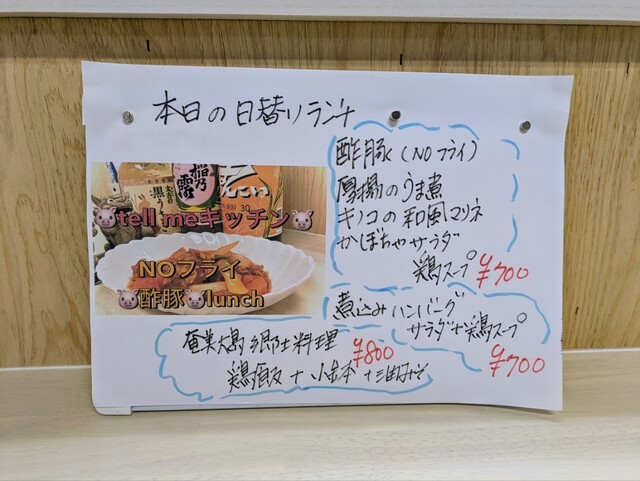 本日の日替りランチ
酢豚(NOフライ)
厚揚のうま煮
キノコの和風マリネ
かぼちゃサラダ
鶏スープ ¥700
煮込みハンバーグ
サラダ+鶏スープ
¥700
奄美大島郷土料理
¥800
鶏飯+小鉢+油みそ
稲乃露
黒う
んこい
30
🐷tell meキッチン🐷
NOフライ
🐷酢豚🐷lunch